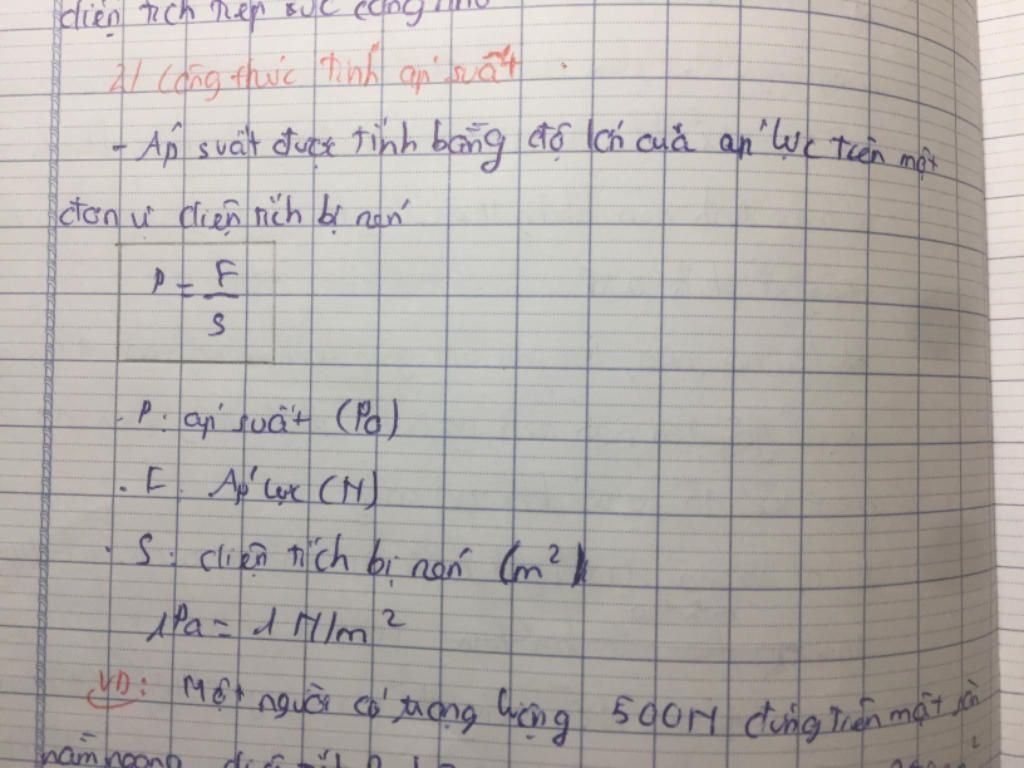 diện tích tiếp xúc càng nhỏ
2/ Công thức tính áp suất
- Áp suất được tính bằng độ lớn của áp lực trên một
đơn vị diện tích bị nén
P = F/S
. P: áp suất (Pa)
. F: Áp lực (N)
. S: diện tích bị nén (m²)
1Pa = 1 N/m²
VD: Một người có trọng lượng 500N đứng trên một sàn
nằm ngang